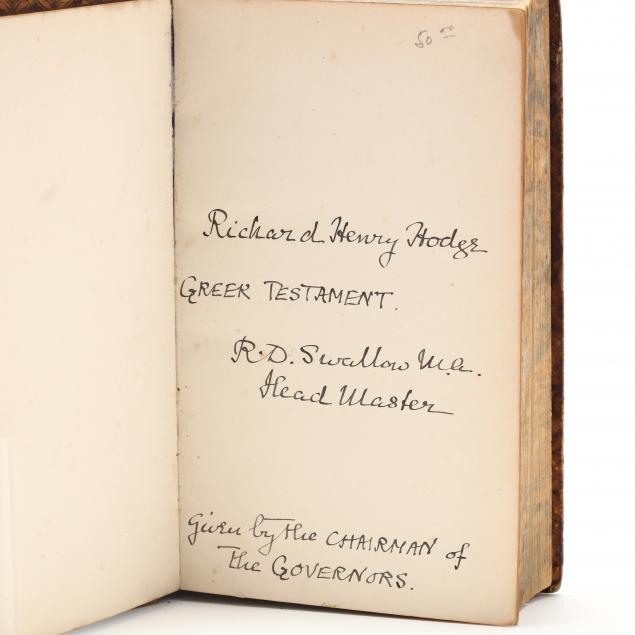 50 00
Richard Henry Hodge
GREEK TESTAMENT.
R.D. Swallow M.a.
Head Master
Given by the CHAIRMAN of
The GOVERNORS.